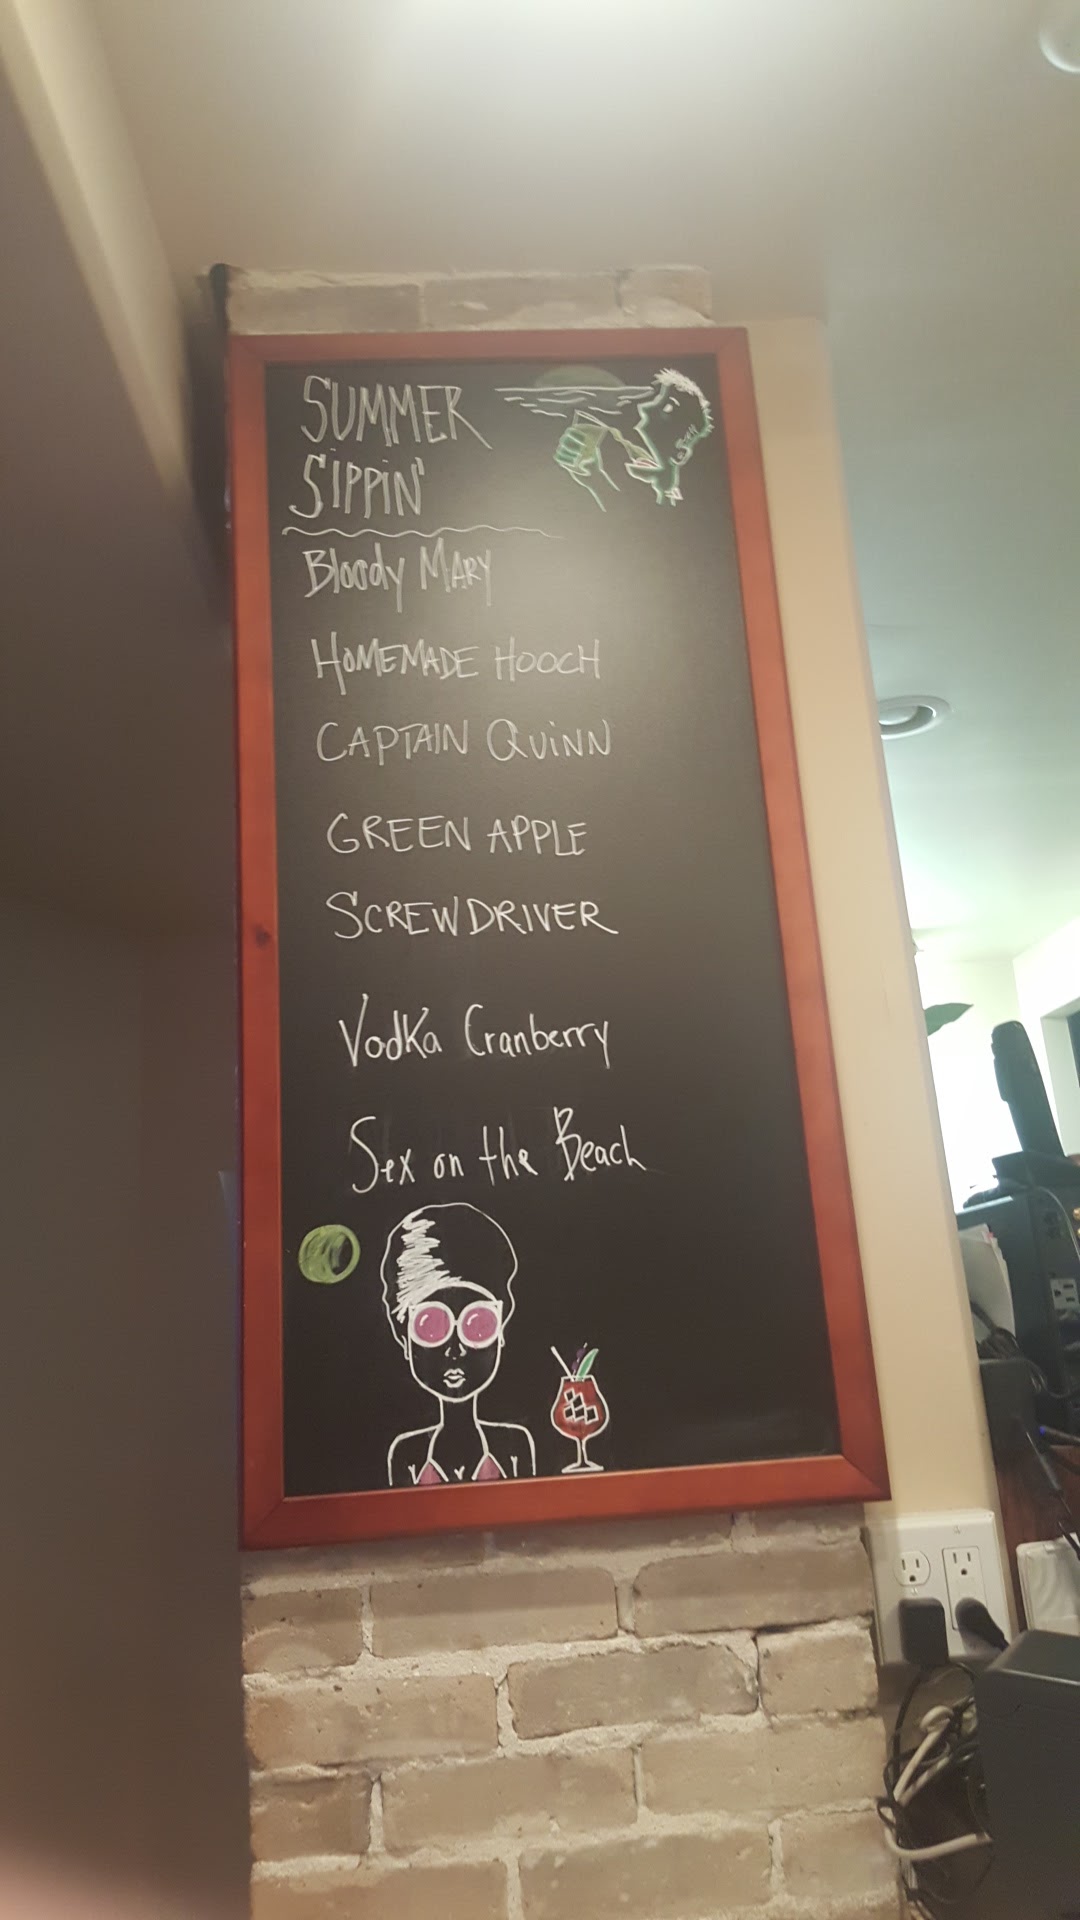 SUMMER
SIPPIN'
Bloody MARY
HOMEMADE HOOCH
CAPTAIN QUINN
GREEN APPLE
SCREWDRIVER
Vodka Cranberry
Sex on the Beach